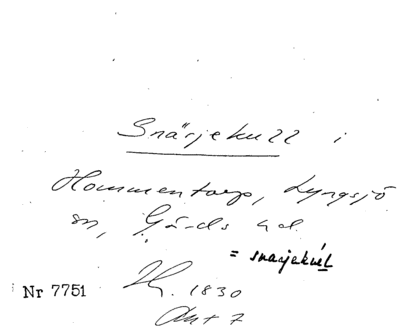 Snärjekull i
Hommentorp, Lyngsjö
sn, Gärds hd.
= snarjekúll
Nr 7751
1830
Akt 7